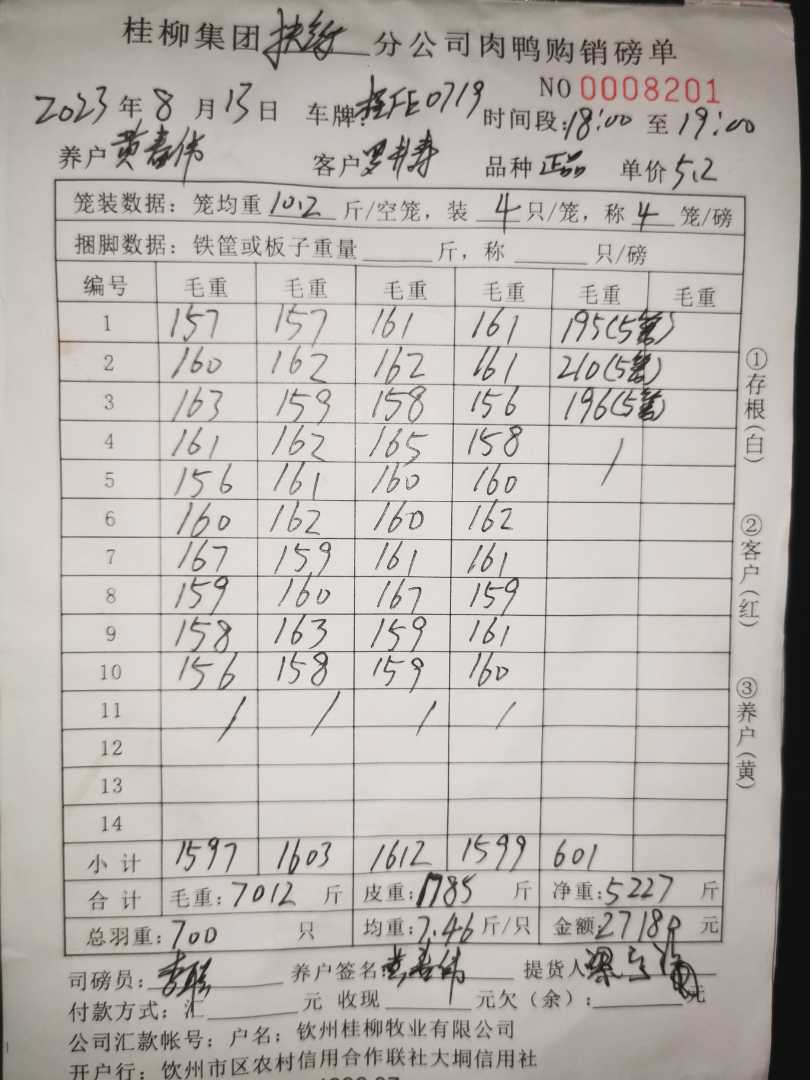 桂柳集团扶绥分公司肉鸭购销磅单
NO 0008201
2023年8月13日 车牌:桂FE0719 时间段:18:00至19:00
养户黄春伟 客户罗 寿 品种正品 单价5.2
笼装数据：笼均重10.2斤/空笼，装4只/笼，称4笼/磅
捆脚数据：铁筐或板子重量 斤，称 只/磅
编号 毛重 毛重 毛重 毛重 毛重 毛重
1 157 157 161 161 195(5笼)
2 160 162 162 161 210(5笼)
3 163 159 158 156 196(5笼)
4 161 162 165 158 /
5 156 161 160 160
6 160 162 160 162
7 167 159 161 161
8 159 160 167 159
9 158 163 159 161
10 156 158 159 160
11 / / / /
12
13
14
小计 1597 1603 1612 1599 601
合计 毛重:7012斤 皮重:1785斤 净重:5227斤
总羽重:700只 均重:7.46斤/只 金额:27180元
司磅员:李 养户签名:黄春伟 提货人:梁
付款方式:汇 元 收现 元欠（余）: 元
公司汇款帐号：户名：钦州桂柳牧业有限公司
开户行：钦州市区农村信用合作联社大垌信用社
①存根(白)
②客户(红)
③养户(黄)